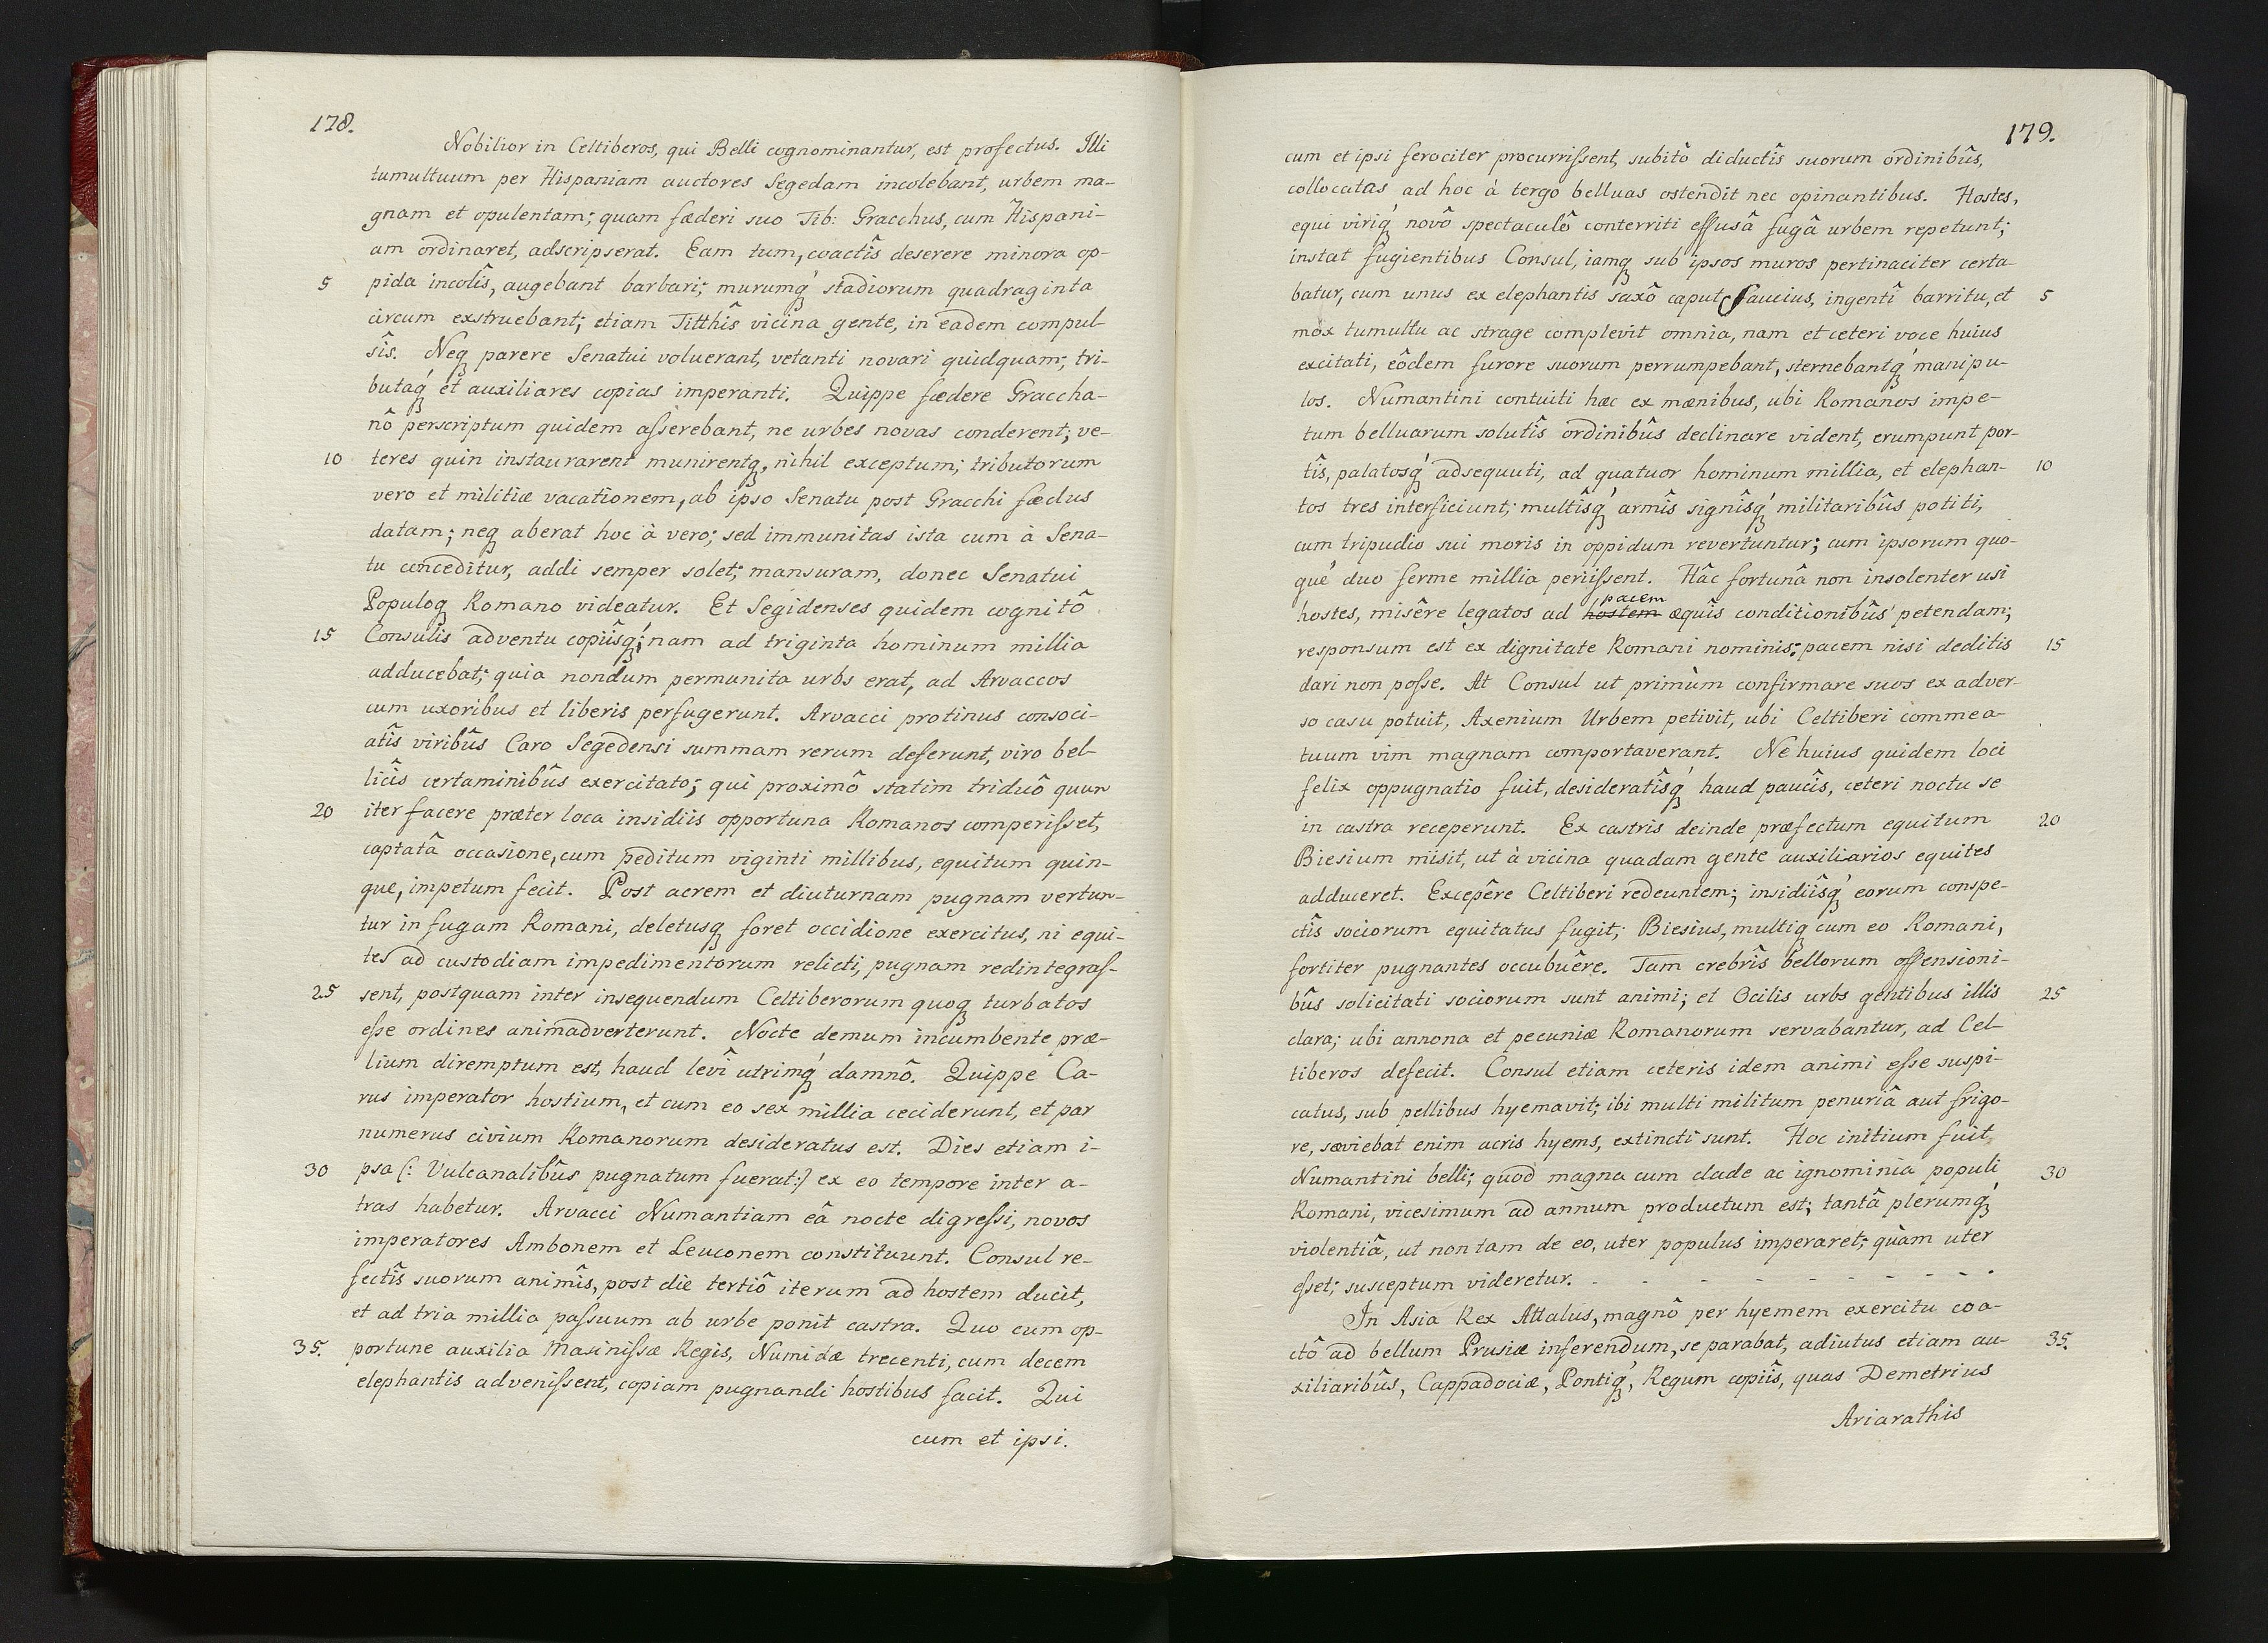 178.
Nobilior in Celtiberos, qui Belli cognominantur, est profectus. Illi
tumultuum per Hispaniam auctores Segedam incolebant, urbem ma-
gnam et opulentam; quam fœderi suo Tib: Gracchus, cum Hispani-
am ordinaret, adscripserat. Eam tum, coactîs deserere minora op-
5 pida incolîs, augebant barbari; murumq́ꝫ stadiorum quadraginta
circum exstruebant; etiam Titthîs vicina gente, in eadem compul
sîs. Neqꝫ parere Senatui voluerant, vetanti novari quidquam; tri-
butaq́ꝫ et auxiliares copias imperanti. Quippe fœdere Graccha-
nô perscriptum quidem aſserebant, ne urbes novas conderent; ve-
10 teres quin instaurarent munirentqꝫ, nihil exceptum; tributorum
vero et militiæ vacationem, ab ipso Senatu post Gracchi fœdus
datam; neqꝫ aberat hoc à vero; sed immunitas ista cum à Sena-
tu conceditur, addi semper solet; mansuram, donec Senatui
Populoqꝫ Romano videatur. Et Segidenses quidem cognitô
15 Consulis adventu copiîsq́ꝫ; nam ad triginta hominum millia
adducebat; quia nondum permunita urbs erat, ad Arvaccos
cum uxoribus et liberis perfugerunt. Arvacci protinus consoci-
atîs viribûs Caro Segedensi summam rerum deferunt, viro bel-
licîs certaminibûs exercitato; qui proximô statim triduô quum
20 iter facere præter loca insidiis opportuna Romanos comperiſset,
captatâ occasione, cum peditum viginti millibus, equitum quin-
que, impetum fecit. Post acrem et diuturnam pugnam vertun-
tur in fugam Romani, deletusqꝫ foret occidione exercitus, ni equi-
tes ad custodiam impedimentorum relicti, pugnam redintegraſ-
25 sent, postquam inter insequendum Celtiberorum quoqꝫ turbatos
eſse ordines animadverterunt. Nocte demum incumbente præ-
lium diremptum est, haud levî utrimq́ꝫ damnô. Quippe Ca-
rus imperator hostium, et cum eo sex millia ceciderunt, et par
numerus civium Romanorum desideratus est. Dies etiam i-
30 psa (: Vulcanalibûs pugnatum fuerat:) ex eo tempore inter a-
tras habetur. Arvacci Numantiam eâ nocte digreſsi, novos
imperatores Ambonem et Leuconem constituunt. Consul re-
fectîs suorum animîs, post die tertiô iterum ad hostem ducit,
et ad tria millia paſsuum ab urbe ponit castra. Quo cum op-
35. portune auxilia Masiniſsæ Regis, Numidæ trecenti, cum decem
elephantis adveniſsent, copiam pugnandi hostibus facit. Qui
cum et ipsi.
179.
cum et ipsi ferociter procurriſsent, subitô diductîs suorum ordinibûs,
collocatas ad hoc à tergo belluas ostendit nec opinantibus. Hostes,
equi viriq́ꝫ novô spectaculô conterriti effusâ fugâ urbem repetunt;
instat fugientibus Consul, iamqꝫ sub ipsos muros pertinaciter certa-
batur, cum unus ex elephantis saxô caput saucius, ingentî barritu, et 5
mox tumultu ac strage complevit omnia, nam et ceteri voce huius
excitati, eôdem furore suorum perrumpebant, sternebantq́ꝫ manipu-
los. Numantini contuiti hæc ex mœnibus, ubi Romanos impe-
tum belluarum solutîs ordinibûs declinare vident, erumpunt por-
tîs, palatosq́ꝫ adsequuti, ad quatuor hominum millia, et elephan- 10
tos tres interficiunt; multîsq́ꝫ armîs signîsq́ꝫ militaribûs potiti,
cum tripudio sui moris in oppidum revertuntur; cum ipsorum quo-
que duo ferme millia periiſsent. Hâc fortunâ non insolenter usi
hostes, misêre legatos ad hostem pacem æquîs conditionibûs petendam;
responsum est ex dignitate Romani nominis: pacem nisi deditis 15
dari non poſse. At Consul ut primùm confirmare suos ex adver-
so casu potuit, Axenium Urbem petivit, ubi Celtiberi commea-
tuum vim magnam comportaverant. Ne huius quidem loci
felix oppugnatio fuit, desideratîsq́ꝫ haud paucîs, ceteri noctu se
in castra receperunt. Ex castris deinde præfectum equitum 20
Biesium misit, ut à vicina quadam gente auxiliarios equites
adduceret. Excepêre Celtiberi redeuntem; insidiîsq́ꝫ eorum conspe-
ctîs sociorum equitatus fugit; Biesius, multiqꝫ cum eo Romani,
fortiter pugnantes occubuêre. Tam crebrîs bellorum offensioni-
bûs solicitati sociorum sunt animi; et Ocilis urbs gentibus illis 25
clara; ubi annona et pecuniæ Romanorum servabantur, ad Cel-
tiberos defecit. Consul etiam ceteris idem animi eſse suspi-
catus, sub pellibus hyemavit; ibi multi militum penuriâ aut frigo-
re, sæviebat enim acris hyems, extincti sunt. Hoc initium fuit
Numantini belli; quod magna cum clade ac ignominia populi 30
Romani, vicesimum ad annum productum est; tantâ plerumq́ꝫ
violentiâ, ut non tam de eo, uter populus imperaret; quàm uter
eſset; susceptum videretur. - - - - - - - - - -
In Asia Rex Attalus, magnô per hyemem exercitu coa-
ctô ad bellum Prusiæ inferendum, se parabat, adiutus etiam au- 35.
xiliaribûs, Cappadociæ, Pontiq́ꝫ, Regum copiîs, quas Demetrius
Ariarathis